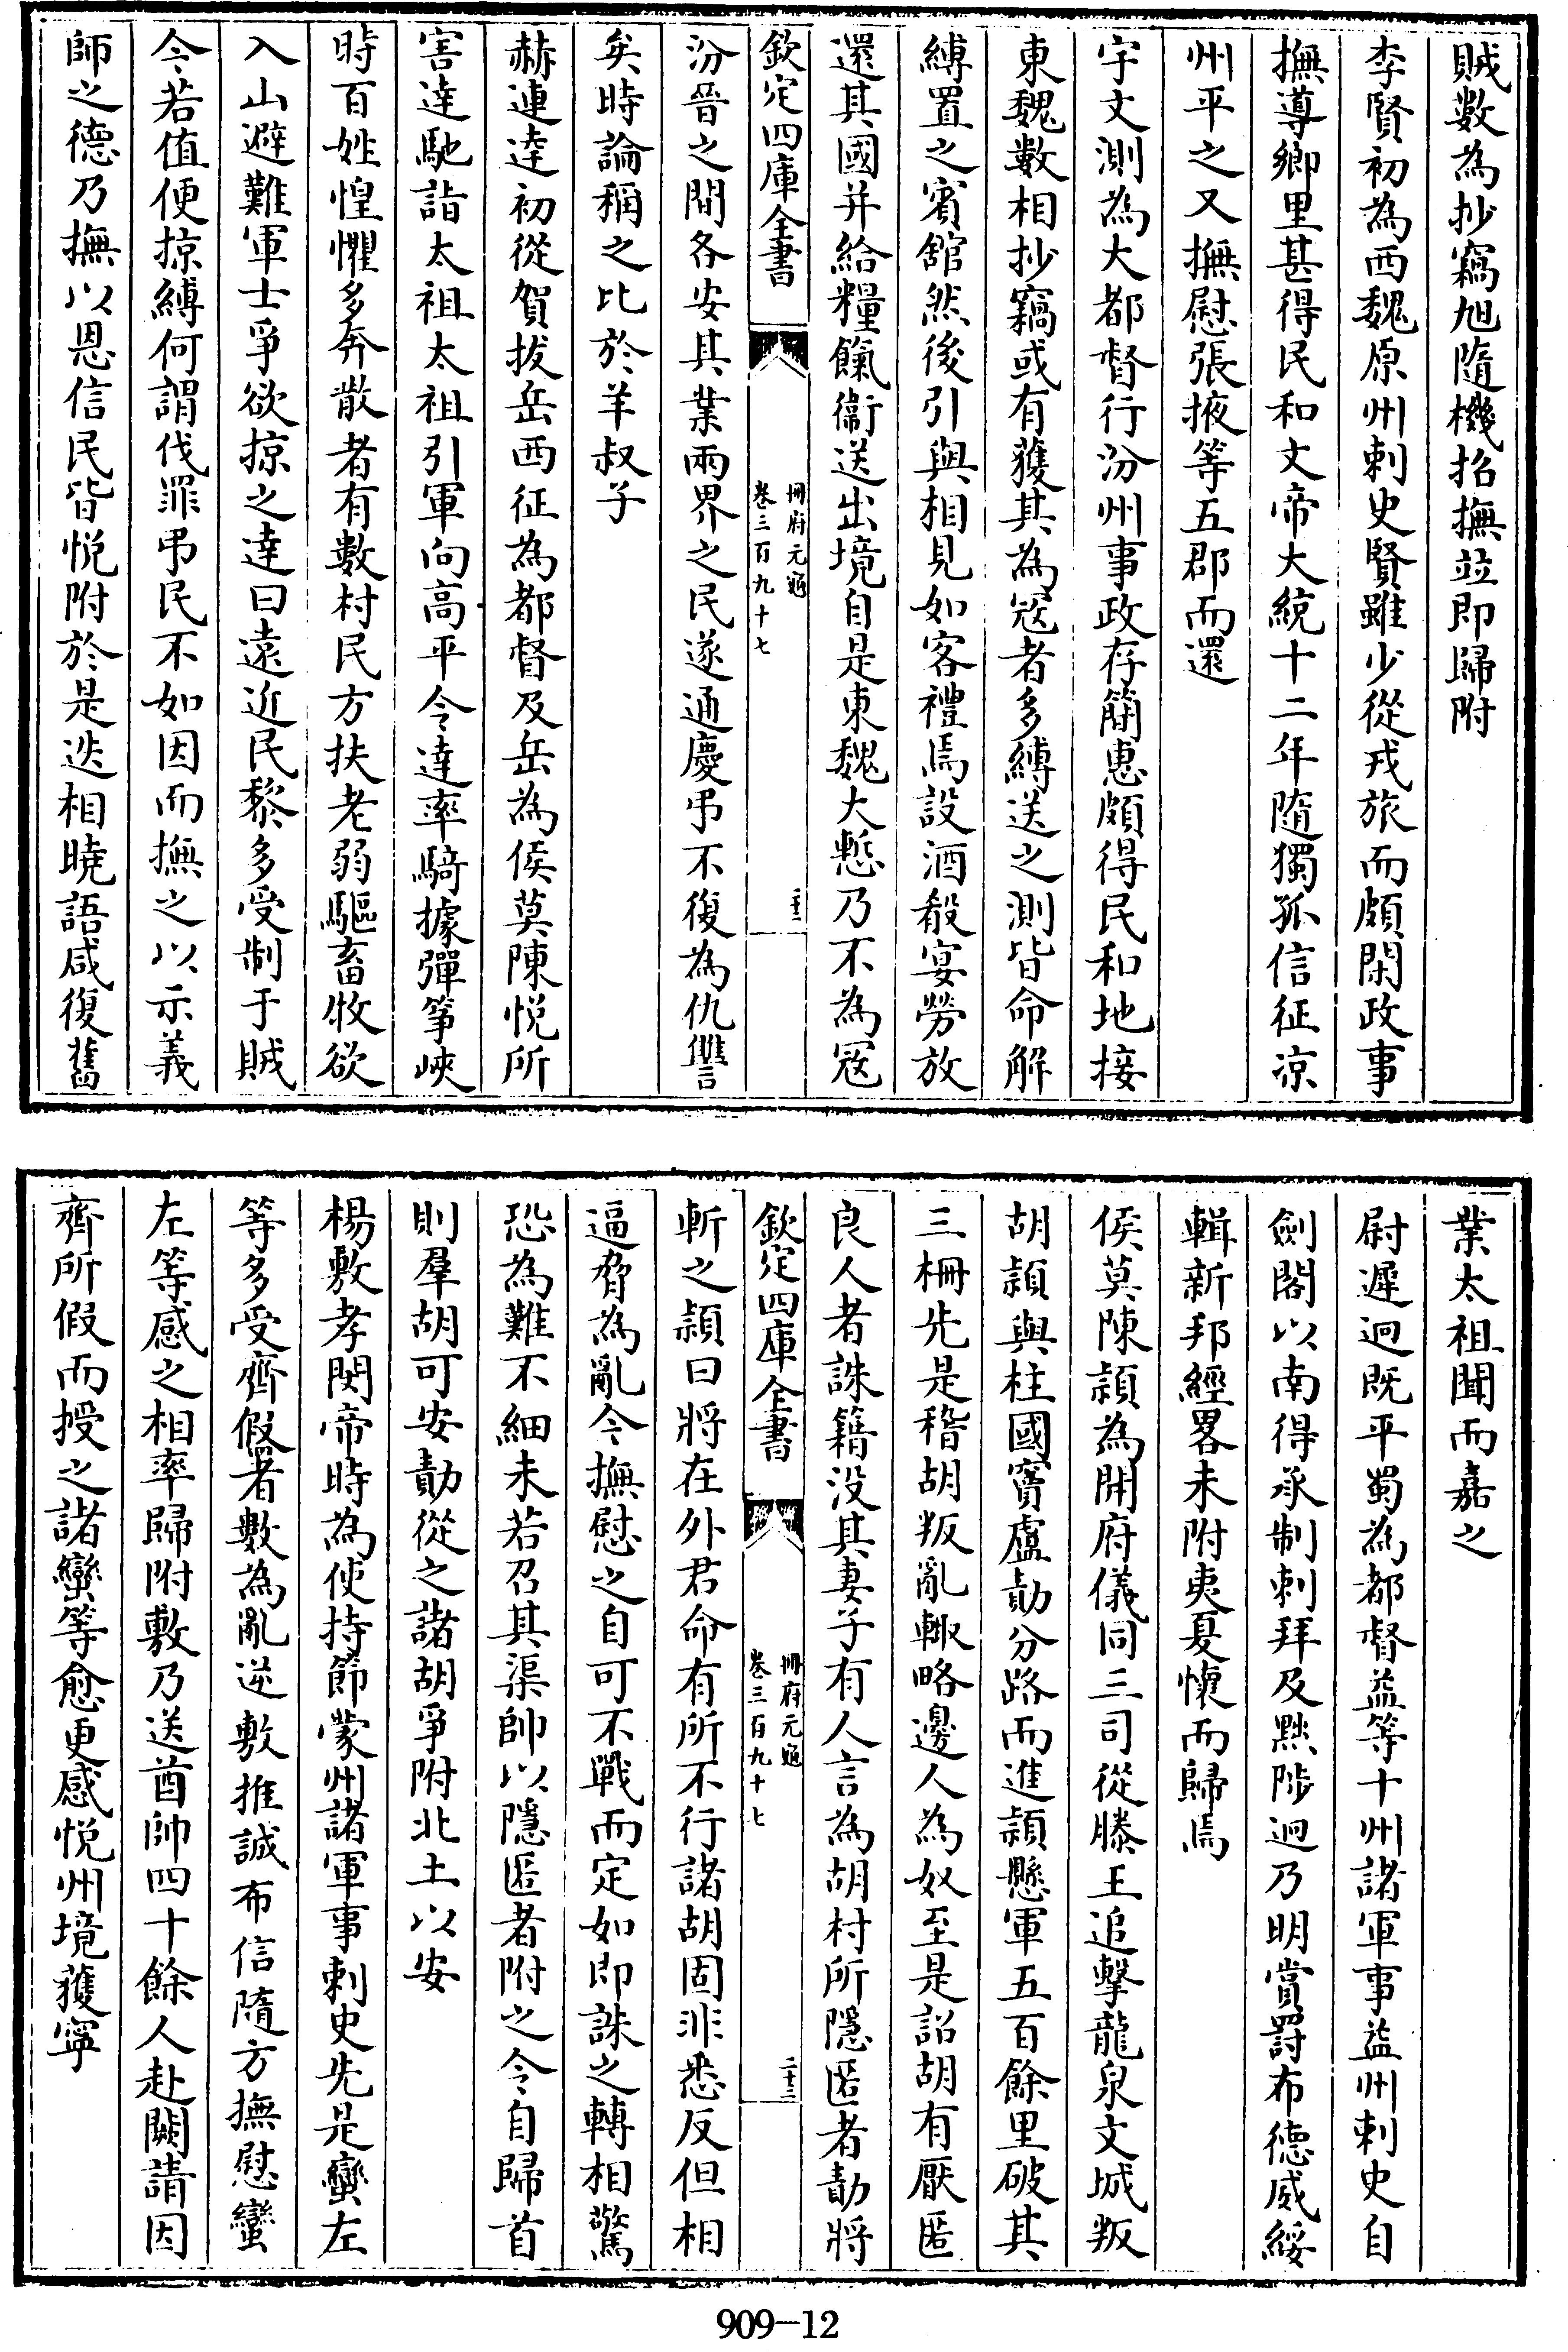 賊數為抄竊旭隨機招撫並即歸附
李賢初為西魏原州刺史賢雖少從戎旅而頗閑政事
撫導鄉里甚得民和文帝大統十二年隨獨孤信征涼
州平之又撫慰張掖等五郡而還
宇文測為大都督行汾州事政存簡惠頗得民和地接
東魏數相抄竊或有獲其為寇者多縛送之測皆命解
縛置之賓舘然後引與相見如客禮焉設酒殽宴勞放
還其國并給糧餼衞送出境自是東魏大慙乃不為寇
欽定四庫全書
冊府元龜
卷三百九十七
二十二
汾晉之間各安其業兩界之民遂通慶弔不復為仇讐
矣時論稱之比於羊叔子
赫連逹初從賀拔岳西征為都督及岳為侯莫陳悅所
害逹馳詣太祖太祖引軍向高平令逹率騎據彈箏峽
時百姓惶懼多奔散者有數村民方扶老弱驅畜牧欲
入山避難軍士爭欲掠之逹曰遠近民黎多受制于賊
今若值便掠縛何謂伐罪弔民不如因而撫之以示義
師之德乃撫以恩信民皆悅附於是迭相曉語咸復舊
業太祖聞而嘉之
尉遲迥既平蜀為都督益等十州諸軍事益州刺史自
劍閣以南得承制刺拜及黜陟迥乃明賞罸布德威綏
輯新邦經畧未附夷夏懷而歸焉
侯莫陳頴為開府儀同三司從滕王追擊龍泉文城叛
胡頴與柱國竇盧勣分路而進頴懸軍五百餘里破其
三柵先是稽胡叛亂輙略邊人為奴至是詔胡有厭匿
良人者誅籍没其妻子有人言為胡村所隱匿者勣將
斬之頴曰將在外君命有所不行諸胡固非悉反但相
逼脅為亂今撫慰之自可不戰而定如即誅之轉相驚
恐為難不細未若召其渠帥以隱匿者附之令自歸首
則羣胡可安勣從之諸胡爭附北土以安
楊敷孝閔帝時為使持節蒙州諸軍事刺史先是蠻左
等多受齊假署數為亂逆敷推誠布信隨方撫慰蠻
左等感之相率歸附敷乃送酋帥四十餘人赴闕請因
齊所假而授之諸蠻等愈更感悅州境獲寧
欽定四庫全書
冊府元龜
卷三百九十七
二十三
909-12